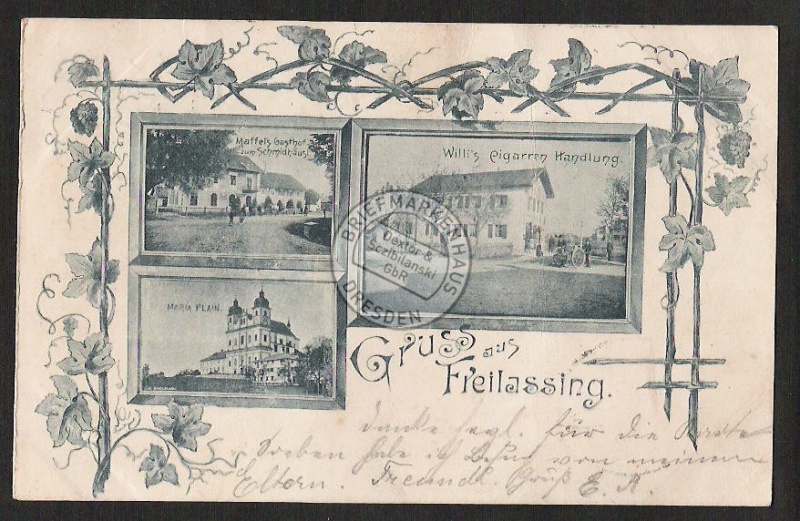 Maffei's Gasthof
zum Schmidhäusl
Willi's Cigarren Handlung.
MARIA PLAIN.
BRIEFMARKENHAUS
Dexter &
Sczibilanski
GbR
DRESDEN
Gruss aus
Freilassing.
danke für die Karte
Soeben habe von meinen
Eltern. Freundl. Gruß E. R.